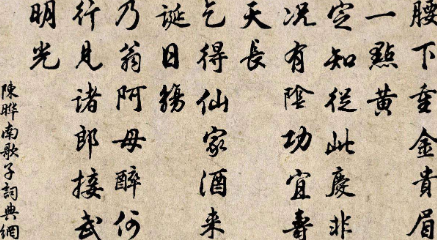 腰下重金貴眉
一點黃
定知從此慶非
況有陰功宜壽
天長
乞得仙家酒来
誕日觴
乃翁阿母醉何
行見諸郎接武
明光
陳曄南歌子詞典網